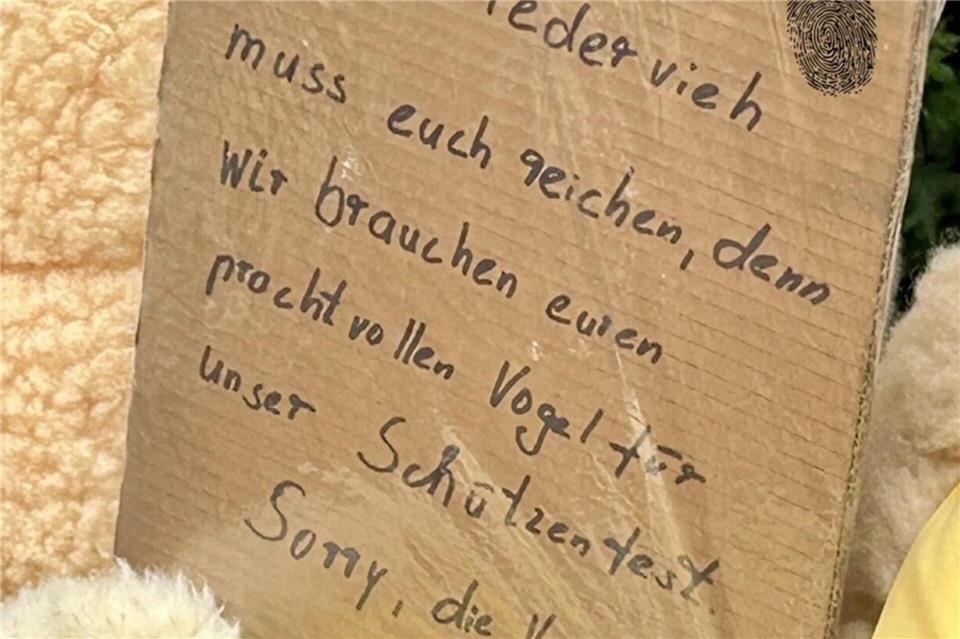 muss euch reichen, denn
Wir brauchen euren
prachtvollen Vogel für
unser Schützentest.
Sorry, die